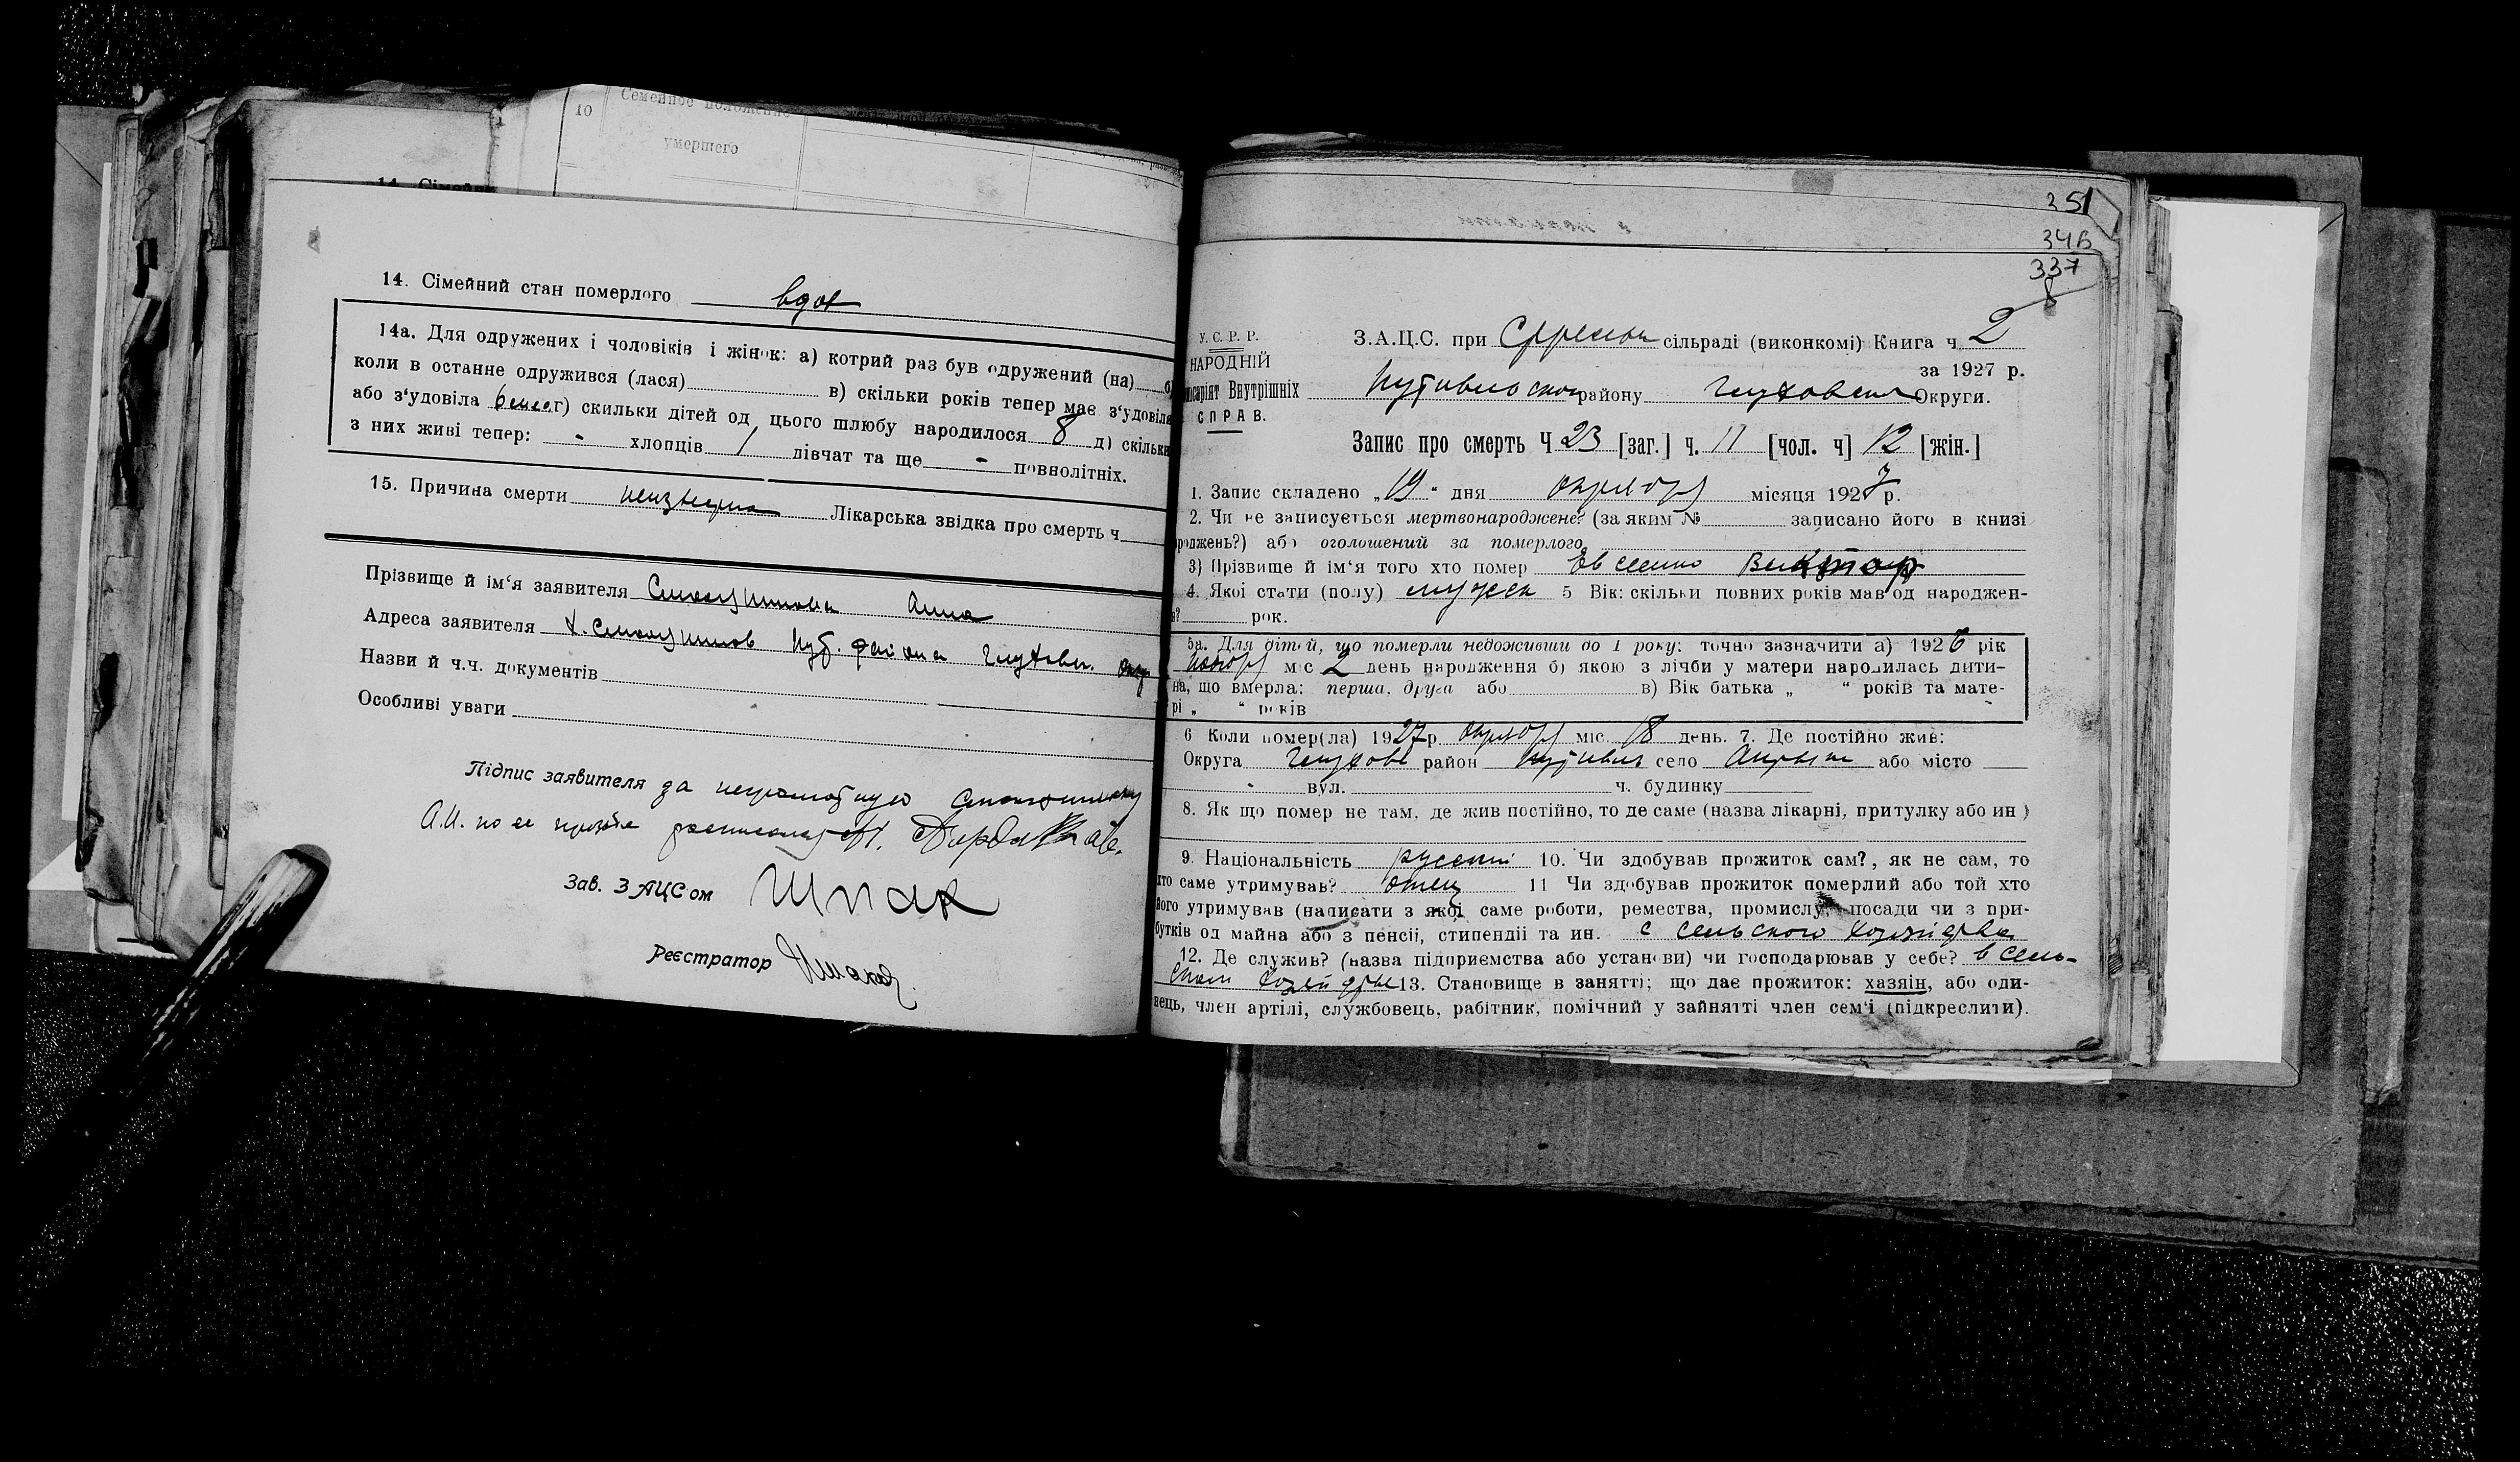 10
Семейное положение
умершего
14. Сімейний стан померлого вдов
14а. Для одружених і чоловіків і жінок: а) котрий раз був одружений (на) б)
коли в останне одружився (лася) в) скільки років тепер має з'удовіла
або з'удовіла г) скильки дітей од цього шлюбу народилося 8 д) скільки
з них живі тепер: - хлопців 1 дівчат та ще - повнолітніх.
15. Причина смерти неизвестна Лікарська звідка про смерть ч
Прізвище й ім'я заявителя Анна
Адреса заявителя х. Пут. района Глуховск. окр
Назви й ч.ч. документів
Особливі уваги
Підпис заявителя за неграмотную
А.И. по ее просьбе
Зав. ЗАЦСом Шпак
Реєстратор
351
346
337
8
У.С.Р.Р.
НАРОДНІЙ
місаріят Внутрішніх
СПРАВ.
З.А.Ц.С. при сільраді (виконкомі) Книга ч 2
за 1927 р.
Путивльского району Глуховской Округи.
Запис про смерть Ч 23 [заг.] ч. 11 [чол. ч] 12 [жін.]
1. Запис складено „19" дня октября місяця 1927 р.
2. Чи не записується мертвонароджене? (за яким № записано його в книзі
роджень?) або оголошений за померлого
3) Прізвище й ім'я того хто помер Евсеенко Виктор
4. Якої стати (полу) мужск 5 Вік: скільки повних років мав од народжен-
я? рок.
5а. Для дітей, що померли недоживши до 1 року: точно зазначити а) 1926 рік
ноября міс 2 день народження б) якою з лічби у матери народилась дити-
на, що вмерла: перша, друга або в) Вік батька „ " років та мате-
рі „ " років
6 Коли помер(ла) 1927 р октября міс. 18 день. 7. Де постійно жив:
Округа Глухове район Путивль село або місто
- вул. ч. будинку
8. Як що помер не там, де жив постійно, то де саме (назва лікарні, притулку або ин)
9. Національність русский 10. Чи здобував прожиток сам?, як не сам, то
хто саме утримував? отец 11 Чи здобував прожиток померлий або той хто
його утримував (написати з якої саме роботи, ремества, промислу, посади чи з при-
бутків од майна або з пенсії, стипендії та ин. с сельского хозяйства
12. Де служив? (назва підприємства або установи) чи господарював у себе? в сель-
ском хозяйстве 13. Становище в занятті; що дає прожиток: хазяін, або оди-
нець, член артілі, службовець, рабітник, помічний у зайнятті член сем'ї (підкреслити).